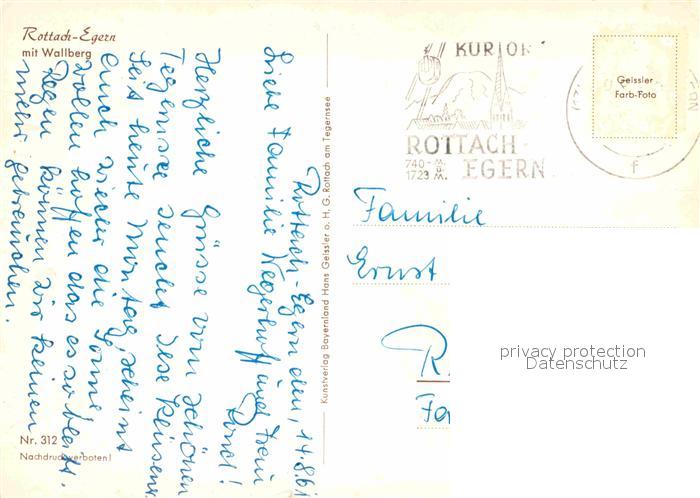 Rottach-Egern
mit Wallberg
Rottach-Egern den, 14.8.61
Liebe Familie
Herzliche Grüsse vom schönen
Tegernsee sendet Ilse
Seit heute Montag, scheint
auch wieder die Sonne
wollen hoffen das es so bleibt.
Regen können wir keinen
mehr gebrauchen.
Nr. 312
Nachdruck verboten!
Kunstverlag Bayernland Hans Geissler o. H. G. Rottach am Tegernsee
KURORT
ROTTACH-
EGERN
740 - M.
ü.
1723 M.
Geissler
Farb-Foto
f
Familie
Ernst
R
Fa
privacy protection
Datenschutz